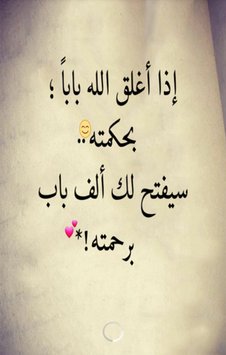 إذا أغلق الله باباً ؛
بحكمته..😊
سيفتح لك ألف باب
برحمته!*💕